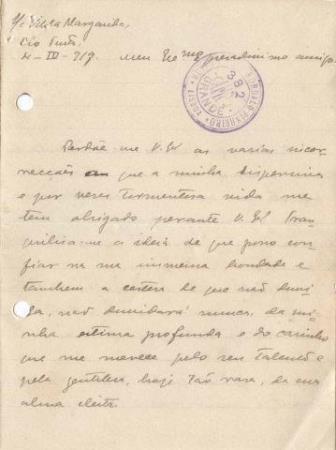 Villa Margarida,
Meu Exmo prezadissimo amigo.
382
Perdôe-me V. Ex as varias incor-
recções que a minha dispersiva
e por vezes tormentosa vida me
tem obrigado perante V. Ex. Tran-
quilisa-me a ideia de que posso con-
fiar na sua immensa bondade e
tambem a certeza de que não duvi-
da, não duvidará nunca, da mi-
nha estima profunda e do carinho
que me merece pelo seu talento e
pela gentileza, hoje tão rara, da sua
alma eleita.